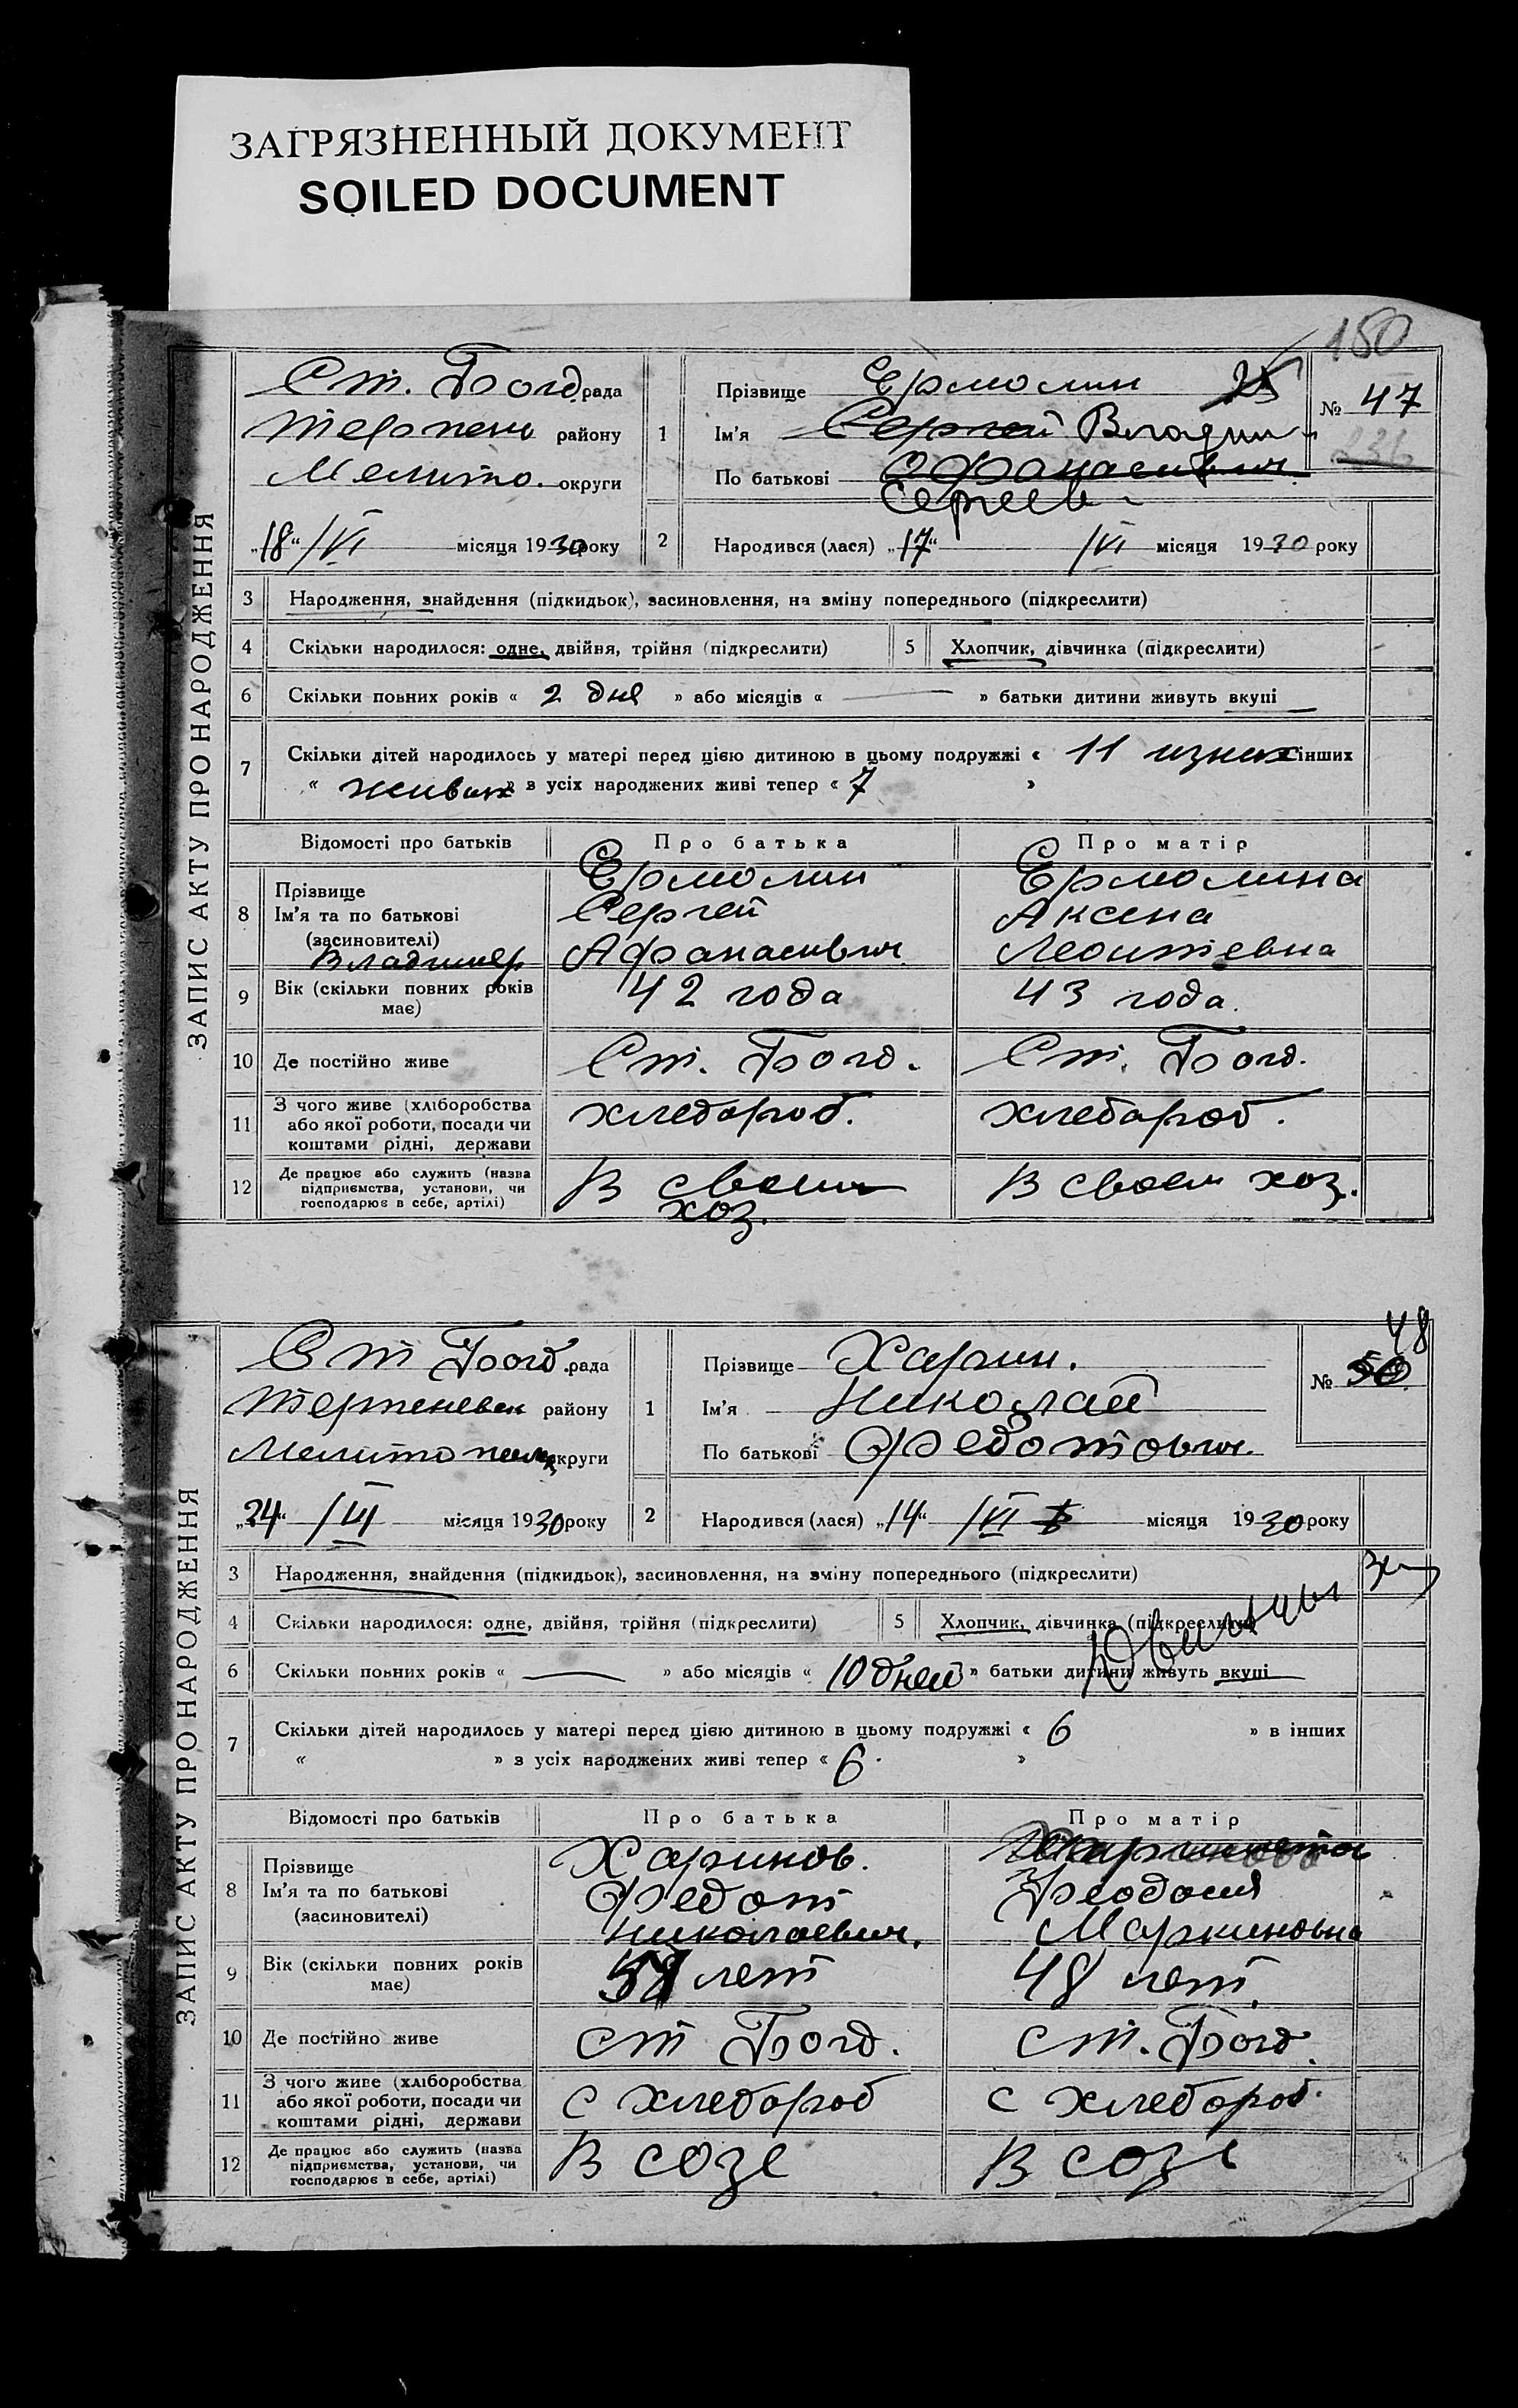 ЗАГРЯЗНЕННЫЙ ДОКУМЕНТ
SOILED DOCUMENT
150
ЗАПИС АКТУ ПРО НАРОДЖЕННЯ
Ст. Богд. рада
району
Мелито. округи
„18“ /VI місяця 1930 року
1
Прізвище Ермолин 25
Ім'я Сергей Владим
По батькові Афанасьевич
Сергеев
№ 47
236
2 Народився (лася) „17“ /VI місяця 1930 року
3 Народження, знайдення (підкидьок), засиновлення, на зміну попереднього (підкреслити)
4 Скільки народилося: одне, двійня, трійня (підкреслити) 5 Хлопчик, дівчинка (підкреслити)
6 Скільки повних років « 2 дня » або місяців « — » батьки дитини живуть вкупі
7 Скільки дітей народилось у матері перед цією дитиною в цьому подружжі « 11 изних інших
« живых » з усіх народжених живі тепер « 7 »
Відомості про батьків Про батька Про матір
8 Прізвище Ермолин Ермолина
Ім'я та по батькові Сергей Аксена
(засиновителі)
Владимер Афанасьевич Леонтевна
9 Вік (скільки повних років має) 42 года 43 года.
10 Де постійно живе Ст. Богд. Ст. Богд.
11 З чого живе (хліборобства або якої роботи, посади чи коштами рідні, держави хлебороб. хлебороб.
12 Де працює або служить (назва підприємства, установи, чи господарює в себе, артілі) В своем хоз. В своем хоз.
ЗАПИС АКТУ ПРО НАРОДЖЕННЯ
Ст Богд. рада
району
округи
„24“ /VI місяця 1930 року
1
Прізвище Харин.
Ім'я Николай
По батькові Федотович
48
№ 50
2 Народився (лася) „14“ /VI місяця 1930 року
3 Народження, знайдення (підкидьок), засиновлення, на зміну попереднього (підкреслити)
4 Скільки народилося: одне, двійня, трійня (підкреслити) 5 Хлопчик, дівчинка (підкреслити)
6 Скільки повних років « — » або місяців « 10 дней » батьки дитини живуть вкупі
7 Скільки дітей народилось у матері перед цією дитиною в цьому подружжі « 6 » в інших
« » з усіх народжених живі тепер « 6. »
Відомості про батьків Про батька Про матір
8 Прізвище Харинов.
Ім'я та по батькові Федот Феодосия
(засиновителі) Николаевич. Маркиновна
9 Вік (скільки повних років має) лет 48 лет.
10 Де постійно живе ст Богд. ст. Богд.
11 З чого живе (хліборобства або якої роботи, посади чи коштами рідні, держави с хлебороб с хлебороб.
12 Де працює або служить (назва підприємства, установи, чи господарює в себе, артілі) В созе В созе